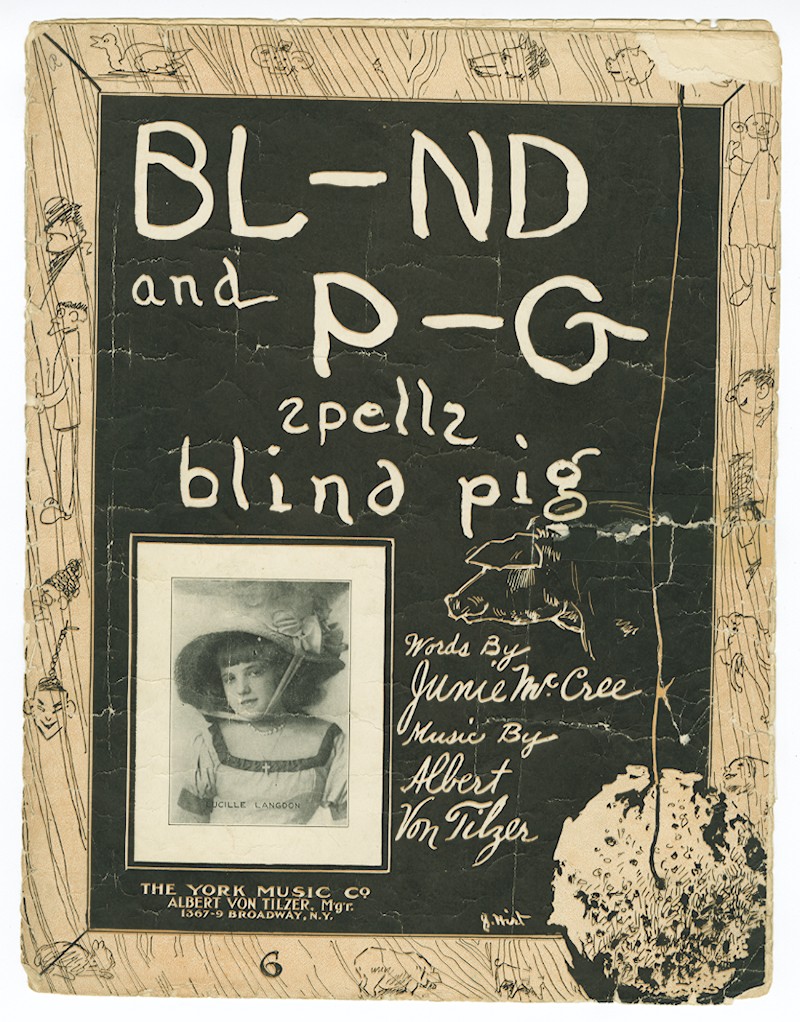 BL–ND
and P–G
spells
blind pig
Words By
Junie McCree
Music By
Albert
Von Tilzer
LUCILLE LANGDON
THE YORK MUSIC Co
ALBERT VON TILZER, Mgr.
1367-9 BROADWAY, N.Y.
J. Hirt
6